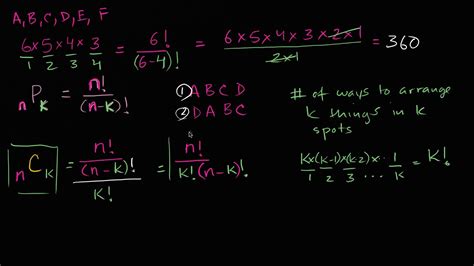 A, B, C, D, E, F
6 x 5 x 4 x 3 = 6! / (6-4)! = 6 x 5 x 4 x 3 x 2 x 1 / 2 x 1 = 360
1 2 3 4
nPk = n! / (n-k)!
① A B C D
② D A B C
# of ways to arrange
k things in k
spots
nCk = n! / (n-k)! / k! = n! / k!(n-k)!
k x (k-1) x (k-2) x ... 1 = k!
1 2 3 ... k